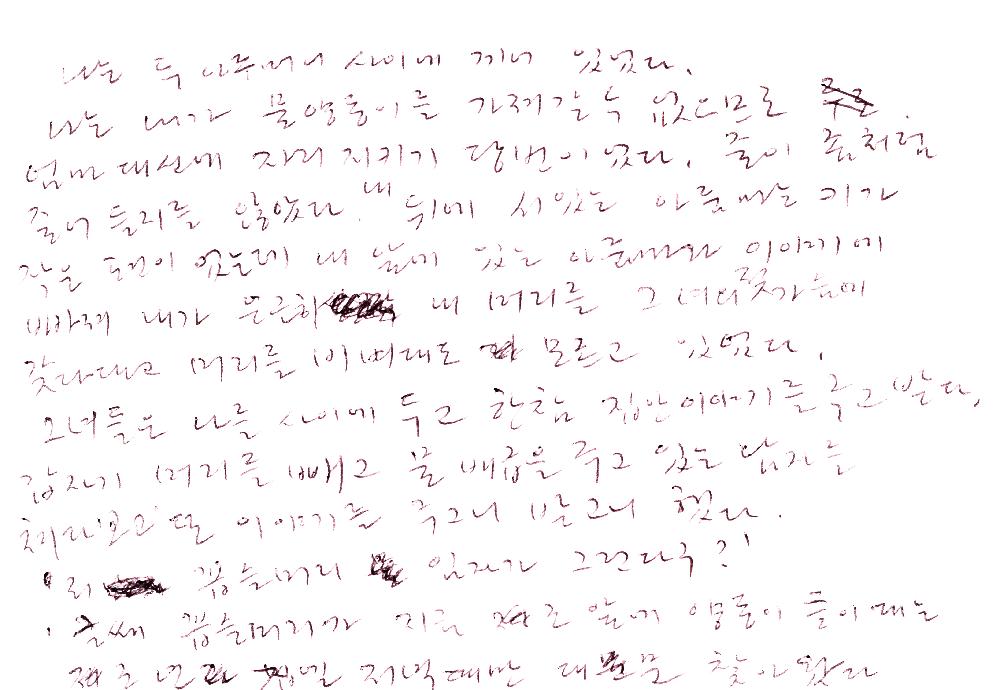 나는 두 아주머니 사이에 끼어 있었다.
나는 내가 물양동이를 가져갈 수 없으므로
엄마 대신에 자리 지키기 당번이었다. 줄이 좀처럼
줄어 들지를 않았다. 내 뒤에 서있는 아줌마는 키가
작은 편이 었는데 내 앞에 있는 아줌마와 이야기에
빠져 내가 은근히 내 머리를 그녀의 젖가슴에
갖다대고 머리를 비벼대도 모르고 있었다.
그녀들은 나를 사이에 두고 한참 집안이야기를 주고 받다,
갑자기 머리를 빼고 물 배급을 주고 있는 남자를
쳐다보고 또 이야기를 주거니 받거니 했다.
'리 꼽슬머리 임자가 그런다구?'
'글쎄 꼽슬머리가 지금 저 앞에 양동이 들이대는
저녁때만 대문 찾아왔다